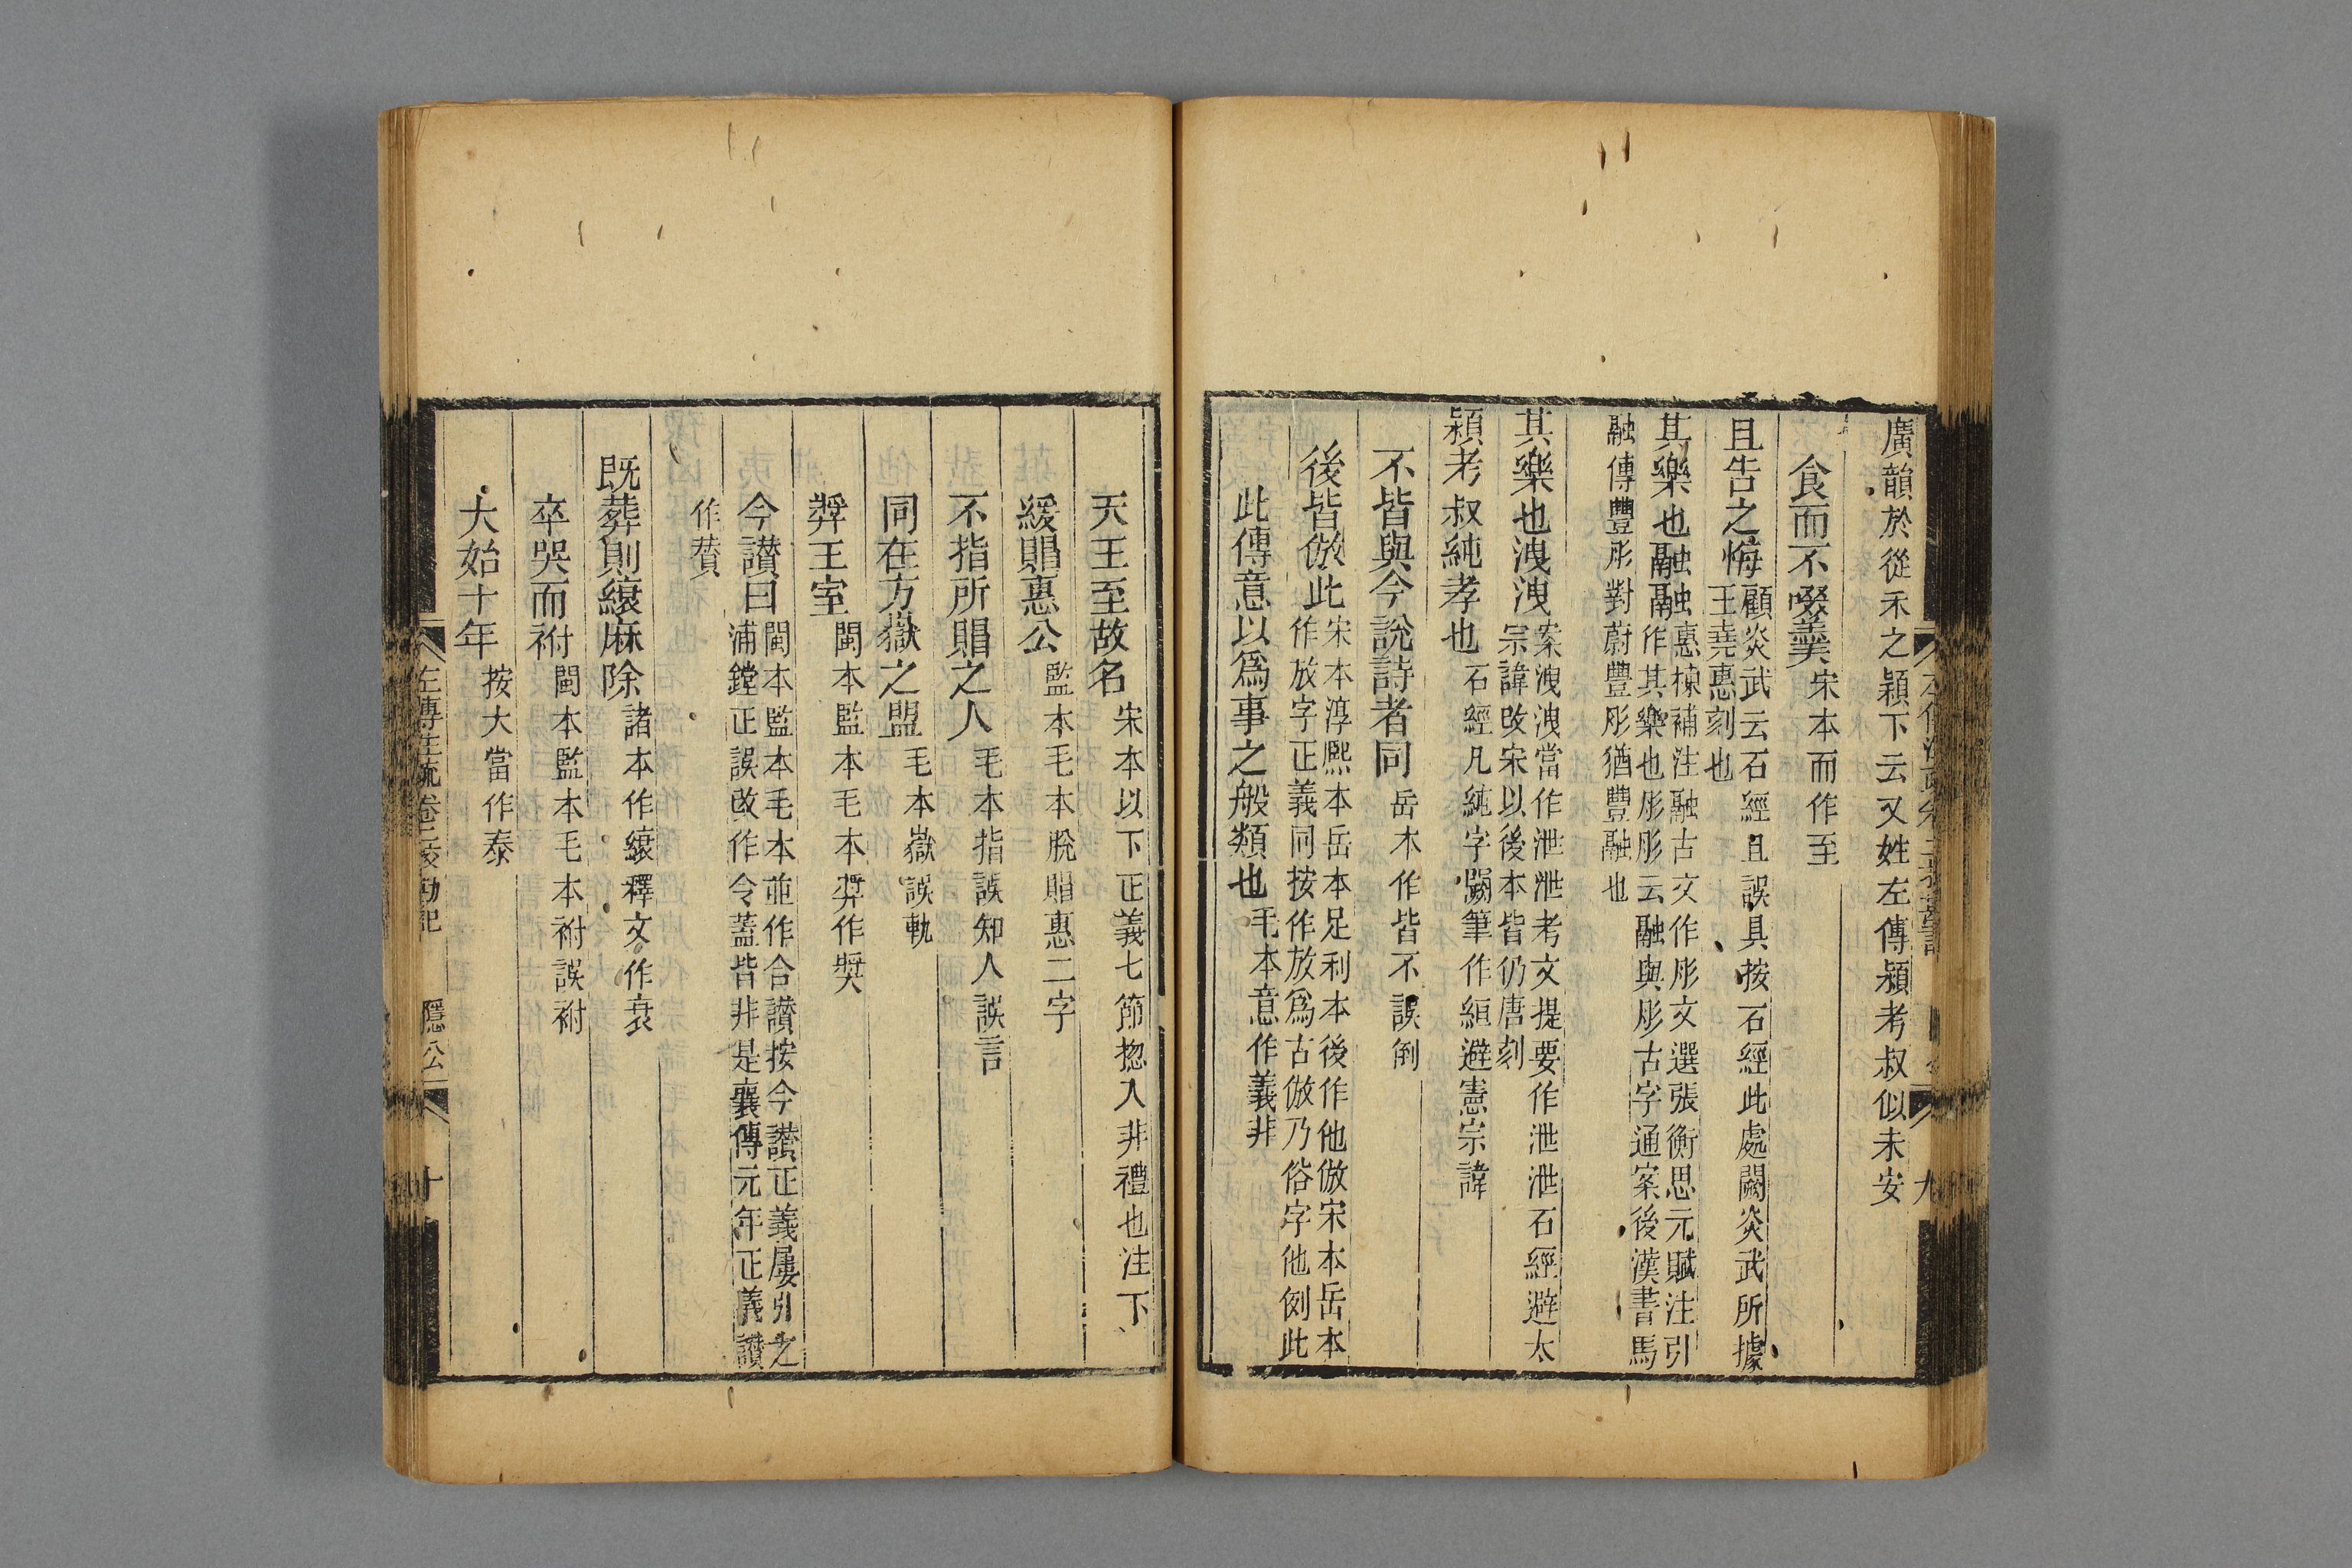 廣韻於從禾之穎下云又姓左傳潁考叔似未安
食而不啜羹宋本而作至
且告之悔顧炎武云石經且誤具按石經此處闕炎武所據
王堯惠刻也
其樂也融融惠棟補注融古文作肜文選張衡思元賦注引
作其樂也肜肜云融與肜古字通案後漢書馬
融傳豐肜對蔚豐肜猶豐融也
其樂也洩洩案洩洩當作泄泄考文提要作泄泄石經避太
宗諱改宋以後本皆仍唐刻
潁考叔純孝也石經凡純字闕筆作紃避憲宗諱
不皆與今說詩者同岳本作皆不誤倒
後皆倣此宋本淳熙本岳本足利本後作他倣宋本岳本
作放字正義同按作放爲古倣乃俗字他例此
此傳意以爲事之般類也毛本意作義非
天王至故名宋本以下正義七節揔入非禮也注下
緩賵惠公監本毛本脫賵惠二字
不指所賵之人毛本指誤知人誤言
同在方嶽之盟毛本嶽誤軌
奬王室閩本監本毛本奬作獎
今讃曰閩本監本毛本並作合讃按今讃正義屢引之
浦鏜正誤改作令蓋皆非是襄傳元年正義讃
作賛
既葬則縗麻除諸本作縗釋文作衰
卒哭而祔閩本監本毛本祔誤袝
大始十年按大當作泰
左傳注疏卷二校勘記 隱公 十